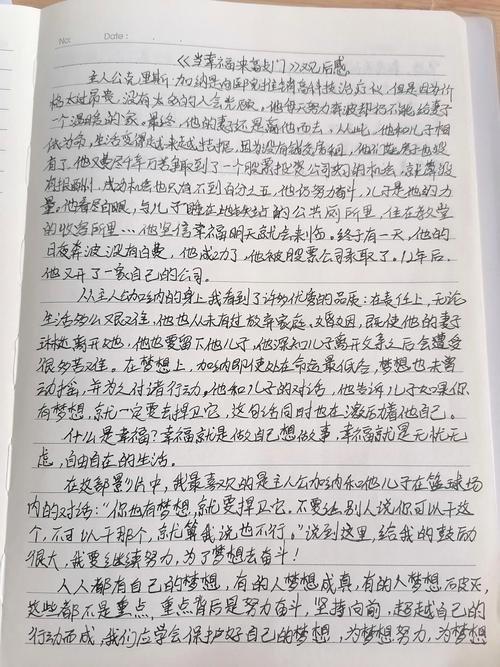 No:
Date:
《当幸福来敲门》观后感
主人公克里斯·加纳是向医院推销高科技治疗仪，但是因为价
格太过昂贵，没有太多的人会光顾。他每天努力奔波却仍不能给妻子
一个温暖的家。最终，他的妻子还是离他而去。从此，他和儿子相
依为命，生活变得越来越拮据，因为没有钱交房租，他们连房子也没
有了。他又费尽千辛万苦争取到了一个股票投资公司的机会，就算没
有报酬，成功机会也只有不到百分之五，他仍努力奋斗，儿子是他的力
量，他看尽白眼，与儿子睡在地铁站的公共厕所里，住在教堂
的收容所里…他坚信幸福明天就会来临。终于有一天，他的
日夜奔波没有白费，他成功了，他被股票公司录取了。12年后，
他又开了一家自己的公司。
从主人公加纳的身上我看到了许多优秀的品质：在责任上，无论
生活多么艰难，他也从未有过放弃家庭、婚姻，既使他的妻子
离开他，他也要留下他儿子，他深知儿子离开父亲之后会遭受
很多苦难。在梦想上，加纳即使处在命运最低谷，梦想也未曾
动摇，并为之付诸行动。他和儿子的对话，他告诉儿子如果你
有梦想，就一定要去捍卫它，这句话同时也在激励着他自己。
什么是幸福？幸福就是做自己想做事，幸福就是无忧无
虑，自由自在的生活。
在这部影片中，我最喜欢的是主人公加纳和他儿子在篮球场
内的对话：“你也有梦想，就要捍卫它。不要让别人说你可以干这
个，不可以干那个，就算我说也不行。”说到这里，给我的鼓励
很大，我要继续努力，为了梦想去奋斗！
人人都有自己的梦想，有的人梦想成真，有的人梦想破灭，
这些都不是重点，重点背后是努力奋斗，坚持向前，超越自己的
行动而成，我们应学会保护好自己的梦想，为梦想努力，为梦想